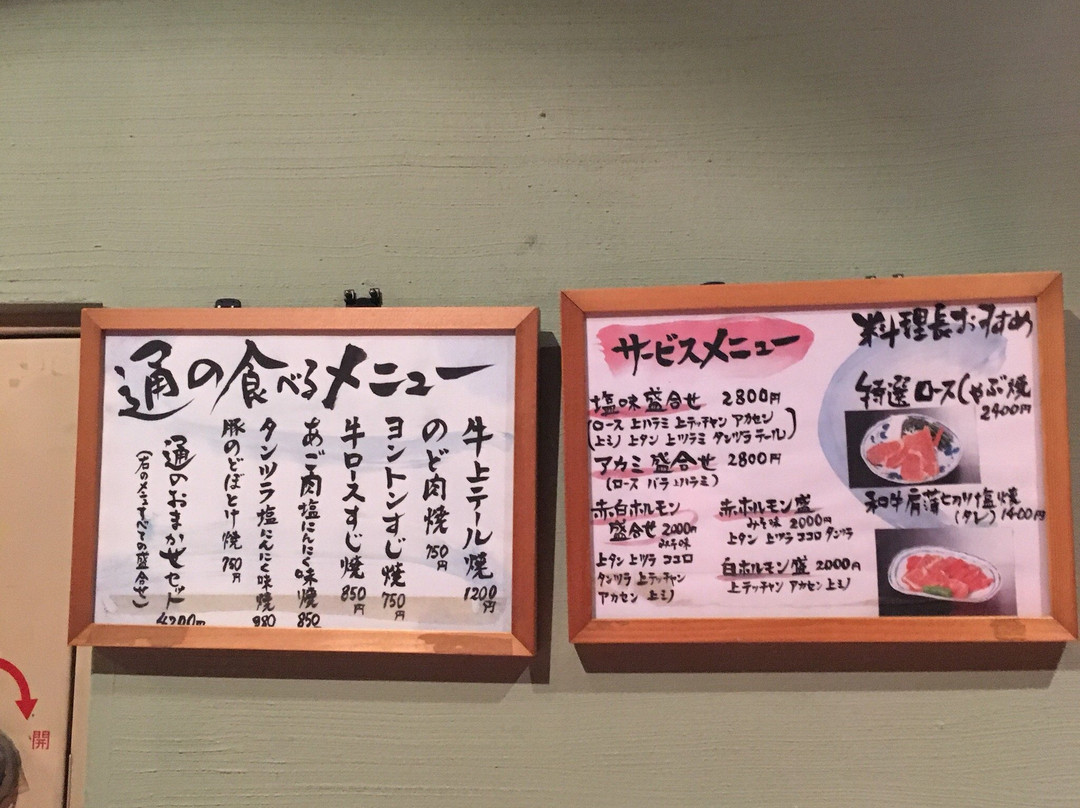 通の食べるメニュー
牛上テール焼 1200円
のど肉焼 750円
ヨントンすじ焼 750円
牛ロースすじ焼 850円
あご肉塩にんにく味焼 850
タンツラ塩にんにく味焼 880
豚のどぼとけ焼 750円
通のおまかせセット 4200円
(右のメニューすべての盛合せ)
サービスメニュー
塩味盛合せ 2800円
(ロース 上ハラミ 上テッチャン アカセン
上ミノ 上タン 上ツラミ タンツラ テール)
アカミ盛合せ 2800円
(ロース バラ 上ハラミ)
赤白ホルモン
盛合せ 2000円
みそ味
上タン 上ツラ ココロ
タンツラ 上テッチャン
アカセン 上ミノ
赤ホルモン盛
みそ味 2000円
上タン 上ヅラ ココロ タンツラ
白ホルモン盛 2000円
上テッチャン アカセン 上ミノ
料理長おすすめ
特選ロースしゃぶ焼
2400円
和牛肩薄切り塩焼
(タレ) 1400円
開